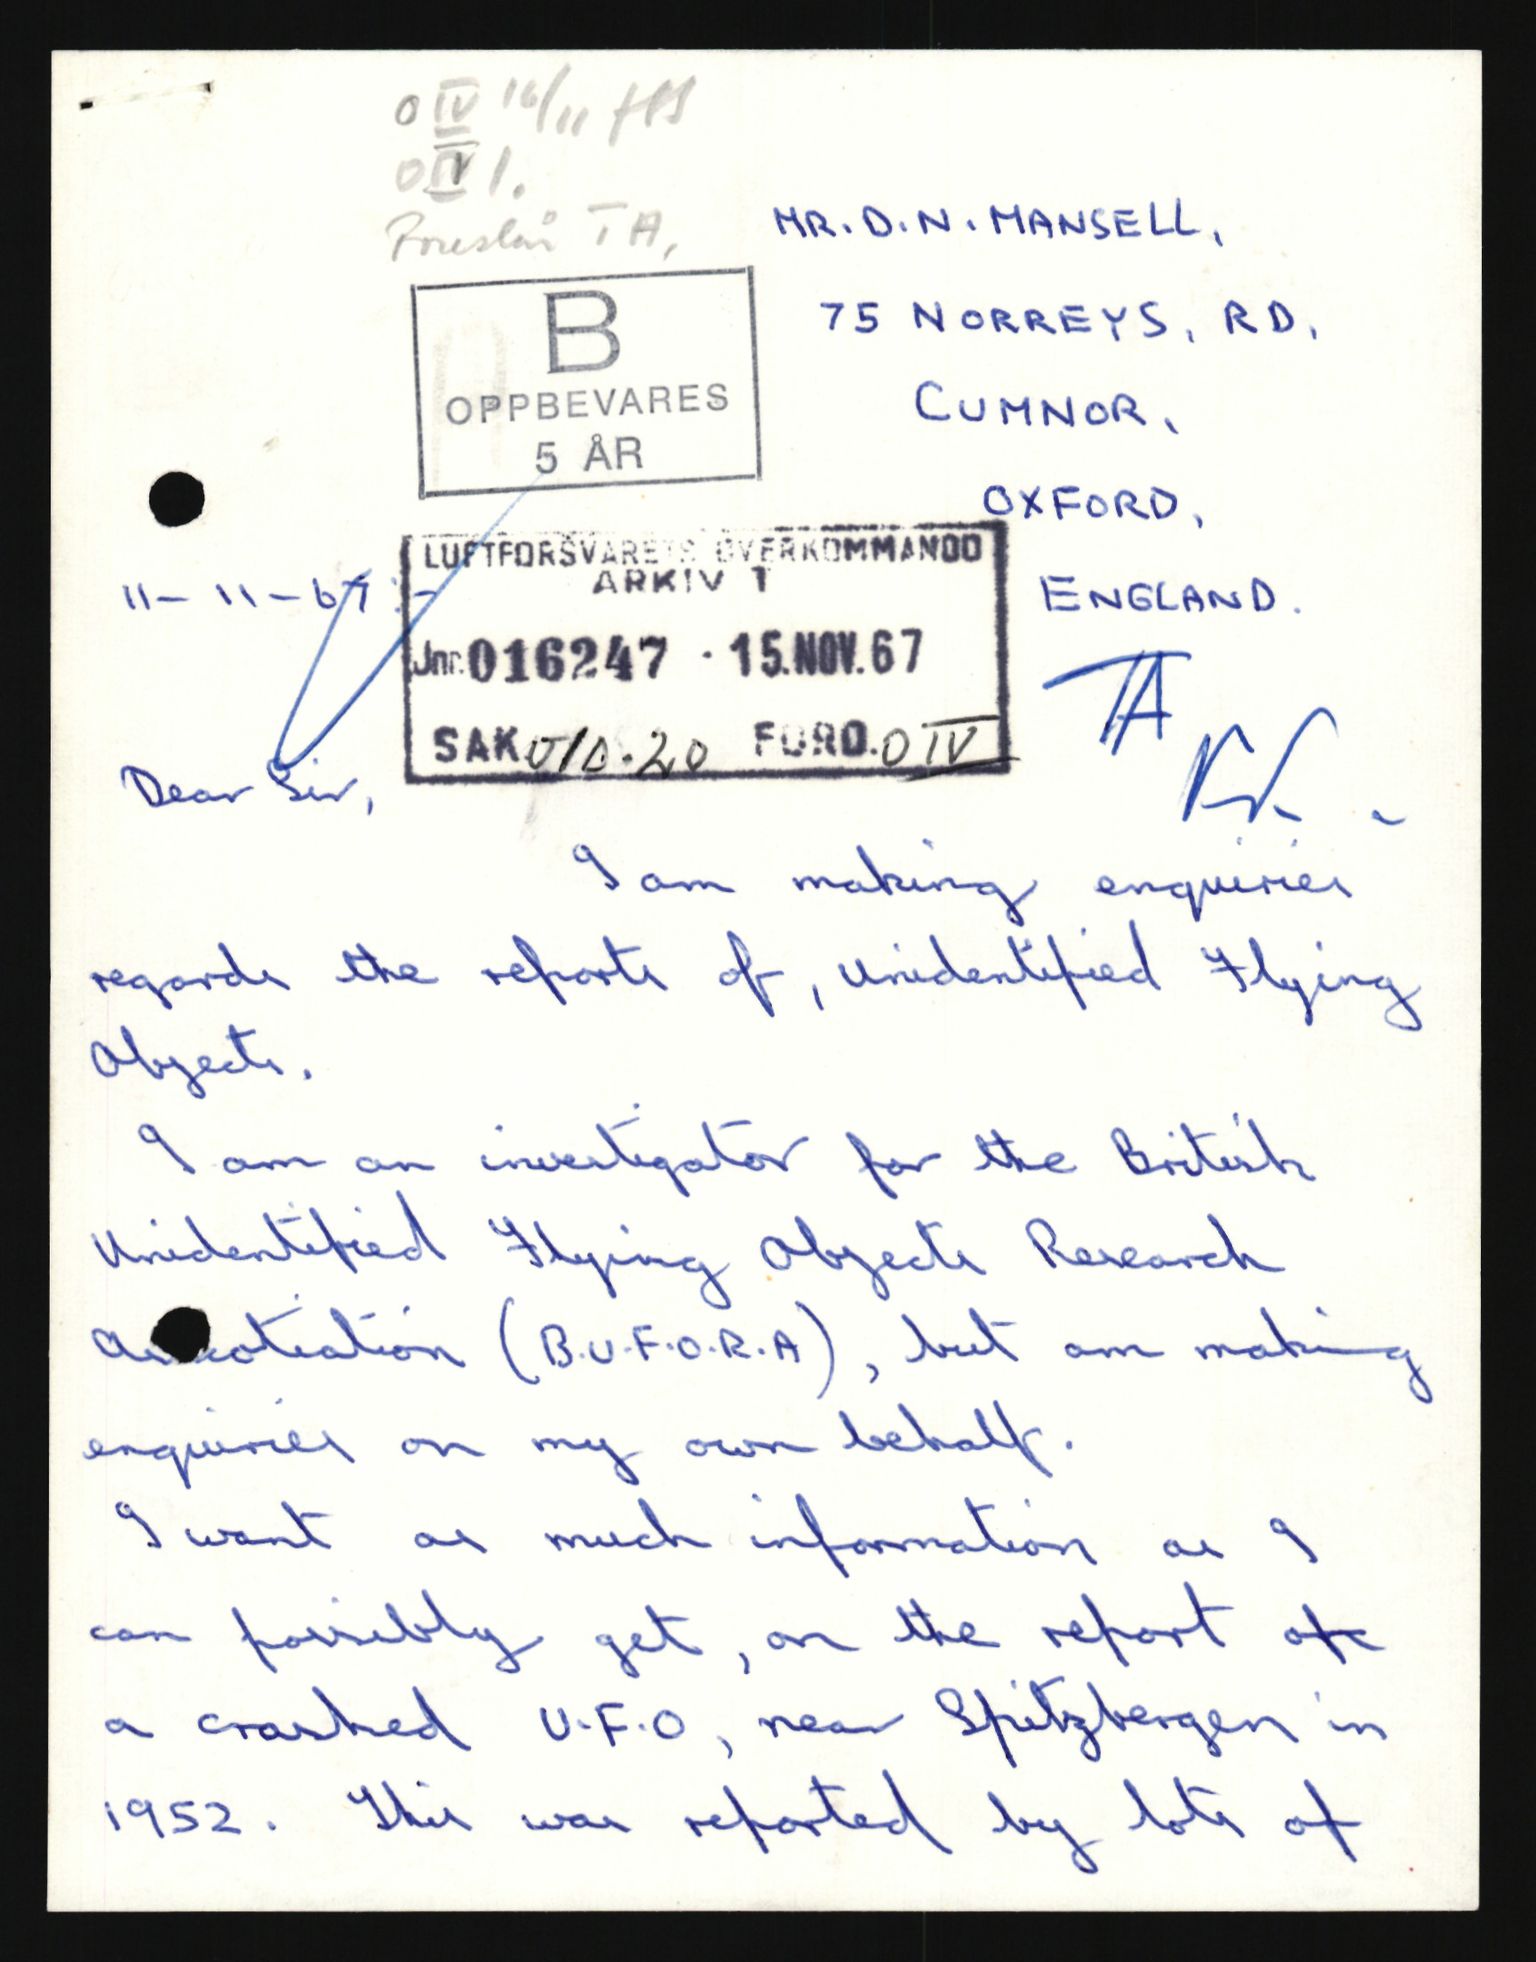 O IV 16/11
O IV 1.
Foreslår TA,
MR. D. N. MANSELL,
75 NORREYS, RD,
CUMNOR,
OXFORD,
ENGLAND.
B
OPPBEVARES
5 ÅR
LUFTFORSVARETS OVERKOMMANDO
ARKIV 1
Jnr. 016247 · 15. NOV. 67
SAK 20 FORD. O IV
TA
11-11-67:-
Dear Sir,
I am making enquiries
regards the reports of, Unidentified Flying
Objects.
I am an investigator for the British
Unidentified Flying Objects Research
(B.U.F.O.R.A), but am making
enquiries on my own behalf.
I want as much information as I
can possibly get, on the report of
a crashed U.F.O, near Spitzbergen in
1952. This was reported by lots of